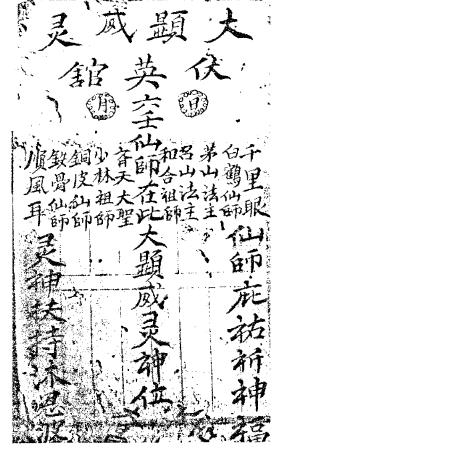 大顯威灵
伏英舘
日月
千里眼仙師庇祐祈神福
白鶴仙師
茅山法主
呂山法主
和合祖師
六壬仙師在此大顯威灵神位
齊天大聖
少林祖師
銅皮仙師
鉄骨仙師
順風耳灵神扶持沐恩